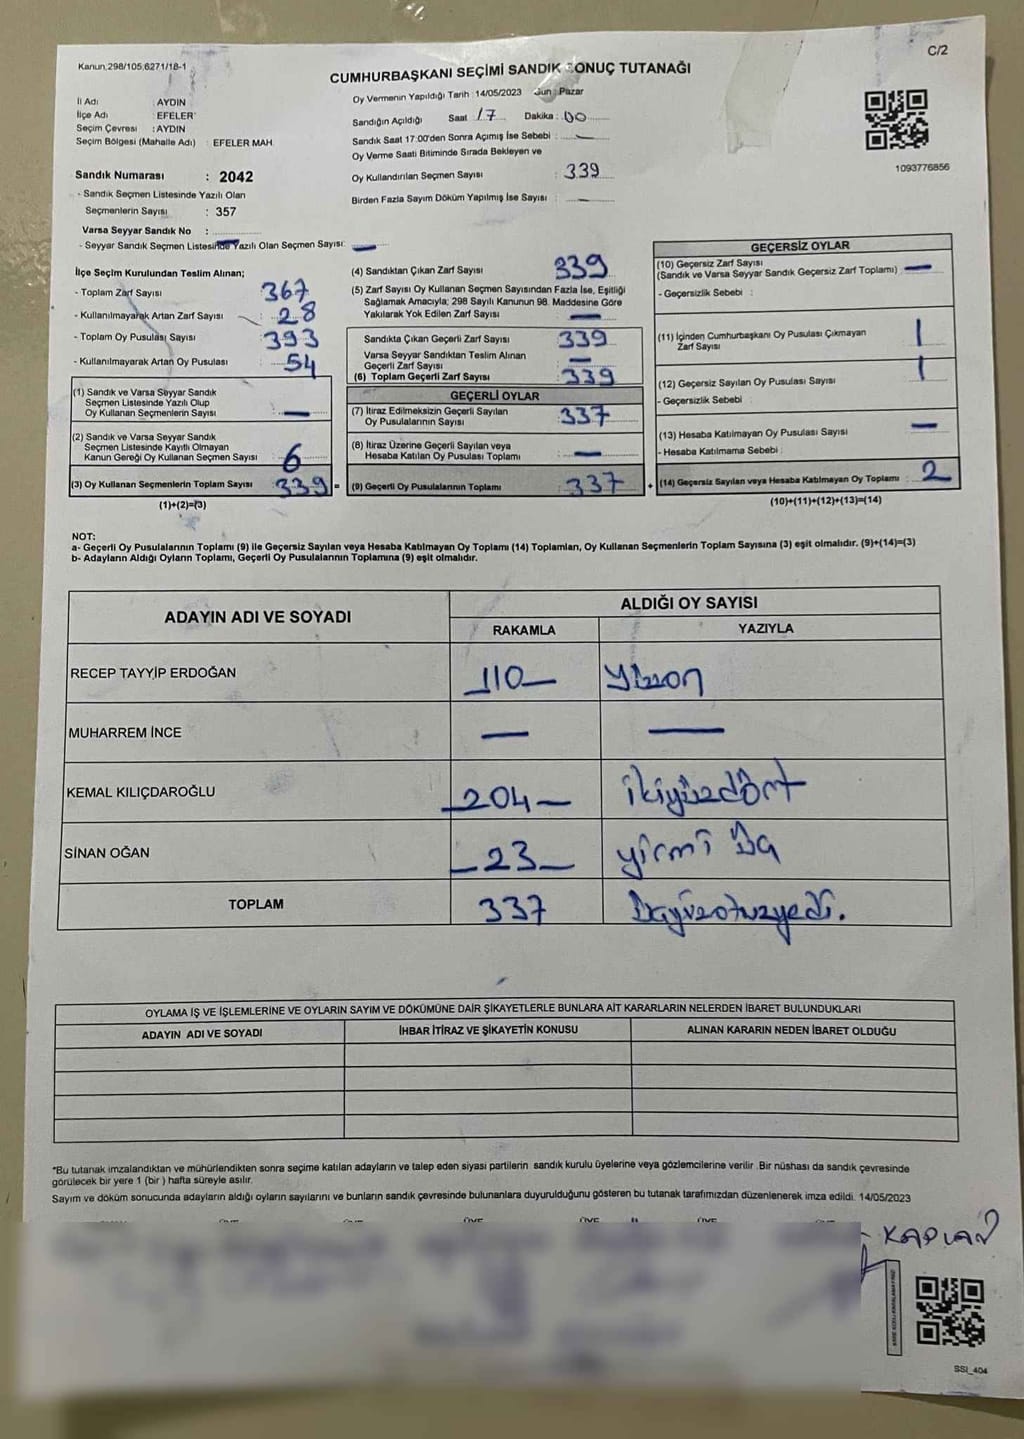 Kanun;298/105,6271/18-1
C/2
CUMHURBAŞKANI SEÇİMİ SANDIK SONUÇ TUTANAĞI
İl Adı : AYDIN
İlçe Adı : EFELER
Seçim Çevresi : AYDIN
Seçim Bölgesi (Mahalle Adı) : EFELER MAH.
Sandık Numarası : 2042
- Sandık Seçmen Listesinde Yazılı Olan
Seçmenlerin Sayısı : 357
Varsa Seyyar Sandık No :
- Seyyar Sandık Seçmen Listesinde Yazılı Olan Seçmen Sayısı: —
Oy Vermenin Yapıldığı Tarih : 14/05/2023 Gün : Pazar
Sandığın Açıldığı Saat 17 Dakika : 00
Sandık Saat 17:00'den Sonra Açımış İse Sebebi : —
Oy Verme Saati Bitiminde Sırada Bekleyen ve
Oy Kullandırılan Seçmen Sayısı : 339
Birden Fazla Sayım Döküm Yapılmış İse Sayısı : —
1093776856
İlçe Seçim Kurulundan Teslim Alınan;
- Toplam Zarf Sayısı 367
- Kullanılmayarak Artan Zarf Sayısı 28
- Toplam Oy Pusulası Sayısı 393
- Kullanılmayarak Artan Oy Pusulası 54
(1) Sandık ve Varsa Seyyar Sandık
Seçmen Listesinde Yazılı Olup
Oy Kullanan Seçmenlerin Sayısı : —
(2) Sandık ve Varsa Seyyar Sandık
Seçmen Listesinde Kayıtlı Olmayan
Kanun Gereği Oy Kullanan Seçmen Sayısı : 6
(3) Oy Kullanan Seçmenlerin Toplam Sayısı : 339 =
(1)+(2)=(3)
(4) Sandıktan Çıkan Zarf Sayısı 339
(5) Zarf Sayısı Oy Kullanan Seçmen Sayısından Fazla İse, Eşitliği
Sağlamak Amacıyla; 298 Sayılı Kanunun 98. Maddesine Göre
Yakılarak Yok Edilen Zarf Sayısı : —
Sandıkta Çıkan Geçerli Zarf Sayısı : 339
Varsa Seyyar Sandıktan Teslim Alınan
Geçerli Zarf Sayısı : —
(6) Toplam Geçerli Zarf Sayısı : 339
GEÇERLİ OYLAR
(7) İtiraz Edilmeksizin Geçerli Sayılan
Oy Pusulalarının Sayısı : 337
(8) İtiraz Üzerine Geçerli Sayılan veya
Hesaba Katılan Oy Pusulası Toplamı : —
(9) Geçerli Oy Pusulalarının Toplamı : 337 +
GEÇERSİZ OYLAR
(10) Geçersiz Zarf Sayısı
(Sandık ve Varsa Seyyar Sandık Geçersiz Zarf Toplamı) : —
- Geçersizlik Sebebi :
(11) İçinden Cumhurbaşkanı Oy Pusulası Çıkmayan
Zarf Sayısı 1
(12) Geçersiz Sayılan Oy Pusulası Sayısı : 1
- Geçersizlik Sebebi :
(13) Hesaba Katılmayan Oy Pusulası Sayısı : —
- Hesaba Katılmama Sebebi :
(14) Geçersiz Sayılan veya Hesaba Katılmayan Oy Toplamı : 2
(10)+(11)+(12)+(13)=(14)
NOT:
a- Geçerli Oy Pusulalarının Toplamı (9) ile Geçersiz Sayılan veya Hesaba Katılmayan Oy Toplamı (14) Toplamları, Oy Kullanan Seçmenlerin Toplam Sayısına (3) eşit olmalıdır. (9)+(14)=(3)
b- Adayların Aldığı Oyların Toplamı, Geçerli Oy Pusulalarının Toplamına (9) eşit olmalıdır.
ADAYIN ADI VE SOYADI ALDIĞI OY SAYISI
RAKAMLA YAZIYLA
RECEP TAYYİP ERDOĞAN 110 yüzon
MUHARREM İNCE — —
KEMAL KILIÇDAROĞLU 204 ikiyüzdört
SİNAN OĞAN 23 yirmi üç
TOPLAM 337 üçyüzotuzyedi.
OYLAMA İŞ VE İŞLEMLERİNE VE OYLARIN SAYIM VE DÖKÜMÜNE DAİR ŞİKAYETLERLE BUNLARA AİT KARARLARIN NELERDEN İBARET BULUNDUKLARI
ADAYIN ADI VE SOYADI İHBAR İTİRAZ VE ŞİKAYETİN KONUSU ALINAN KARARIN NEDEN İBARET OLDUĞU
*Bu tutanak imzalandıktan ve mühürlendikten sonra seçime katılan adayların ve talep eden siyasi partilerin sandık kurulu üyelerine veya gözlemcilerine verilir .Bir nüshası da sandık çevresinde
görülecek bir yere 1 (bir ) hafta süreyle asılır.
Sayım ve döküm sonucunda adayların aldığı oyların sayılarını ve bunların sandık çevresinde bulunanlara duyurulduğunu gösteren bu tutanak tarafımızdan düzenlenerek imza edildi. 14/05/2023
KAPLAN
SSI_404